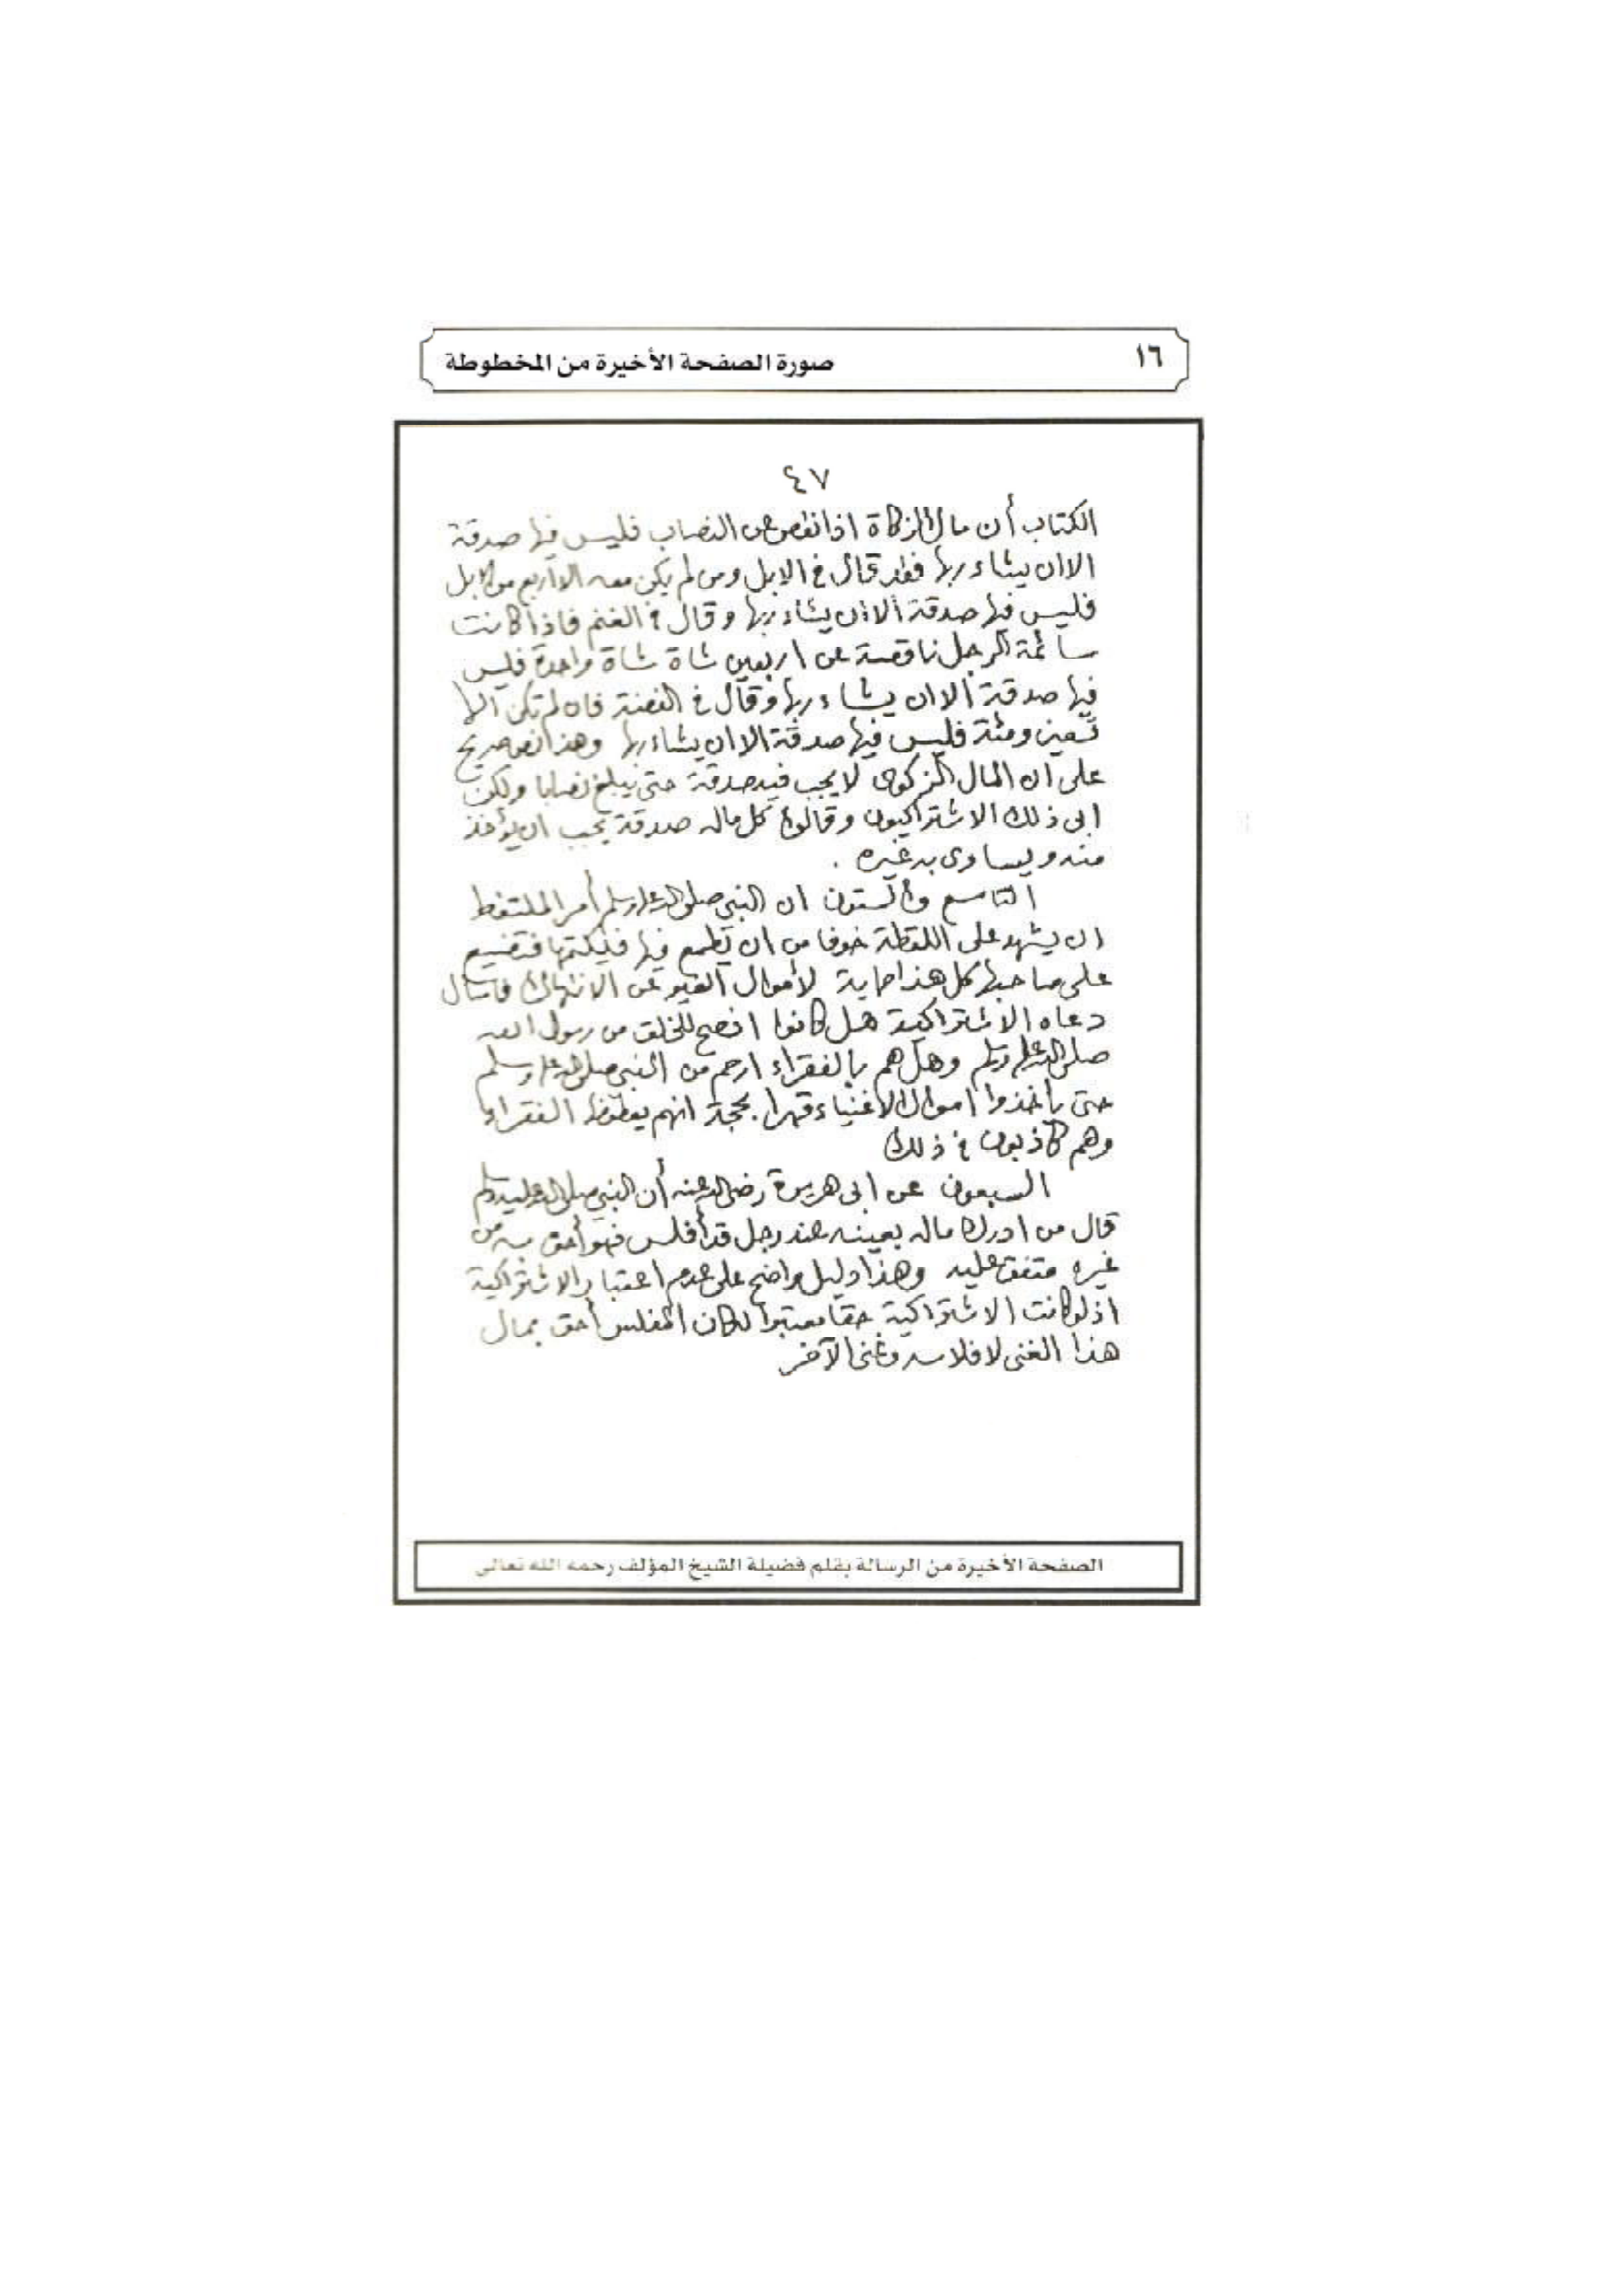 ١٦
صورة الصفحة الأخيرة من المخطوطة
٤٧
الكتاب أن مال الزكاة اذا نقص عن النصاب فليس فيها صدقة
الا ان يشاء ربها فقد قال في الابل ومن لم يكن معه الا أربع من الابل
فليس فيها صدقة الا ان يشاء ربها وقال في الغنم فاذا كانت
سائمة الرجل ناقصة عن اربعين شاة شاة واحدة فليس
فيها صدقة الا ان يشاء ربها وقال في الفضة فان لم تكن الا
تسعين ومئة فليس فيها صدقة الا ان يشاء ربها وهذا نص صريح
على ان المال الزكوي لا يجب فيه صدقة حتى يبلغ نصابا ولكن
ابى ذلك الاشتراكيون وقالوا كل ماله صدقة يجب ان يؤخذ
منه ويساوى به غيره .
التاسع والستون ان النبي صلى الله عليه وسلم أمر الملتقط
ان يشهد على اللقطة خوفا من ان يطمع فيها فيكتمها فتضيع
على صاحبها كل هذا حماية لأموال الغير عن الانتهاك فاسأل
دعاه الاشتراكية هل كانوا انصح للخلق من رسول الله
صلى الله عليه وسلم وهل هم بالفقراء ارحم من النبي صلى الله عليه وسلم
حتى يأخذوا اموال الاغنياء قهرا بحجة انهم يعطونها الفقراء
وهم كاذبون في ذلك
السبعون عن ابى هريرة رضي الله عنه أن النبي صلى الله عليه وسلم
قال من ادرك ماله بعينه عند رجل قد أفلس فهو أحق به من
غيره متفق عليه وهذا دليل واضح على عدم اعتبار الاشتراكية
اذ لو كانت الاشتراكية حقا معتبرا لكان المفلس أحق بمال
هذا الغنى لافلاسه وغنى الآخر
الصفحة الأخيرة من الرسالة بقلم فضيلة الشيخ المؤلف رحمه الله تعالى